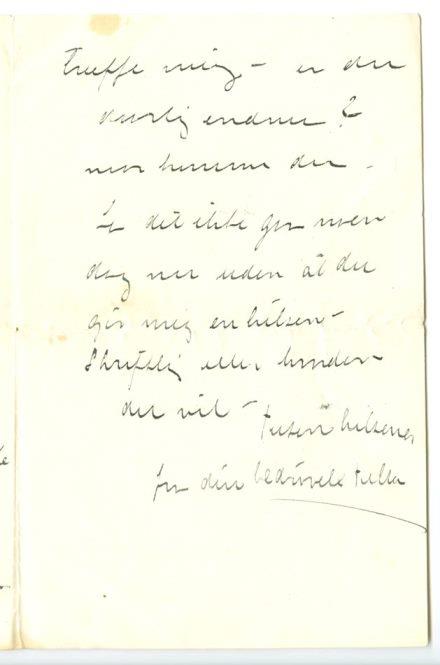 træffe mig – er du
daarlig endnu?
naar kommer du –
La det ikke gå noen
dag mer uden at du
gir mig en hilsen –
Skriftlig eller hvordan
du vil – Tusen hilsener
fra din bedrøvede Tulla